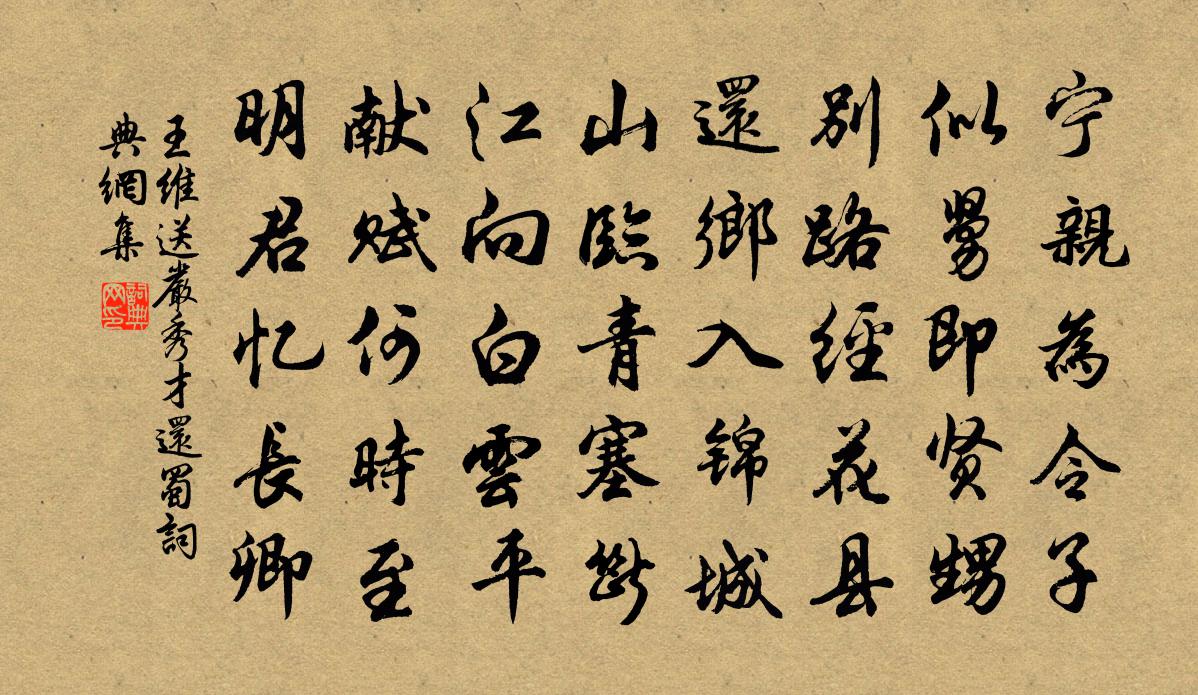 宁親為令子
似舅即贤甥
别路經花县
還鄉入锦城
山臨青塞斷
江向白雲平
献赋何時至
明君忆長卿
王維送嚴秀才還蜀詞
典網集
詞典
网印